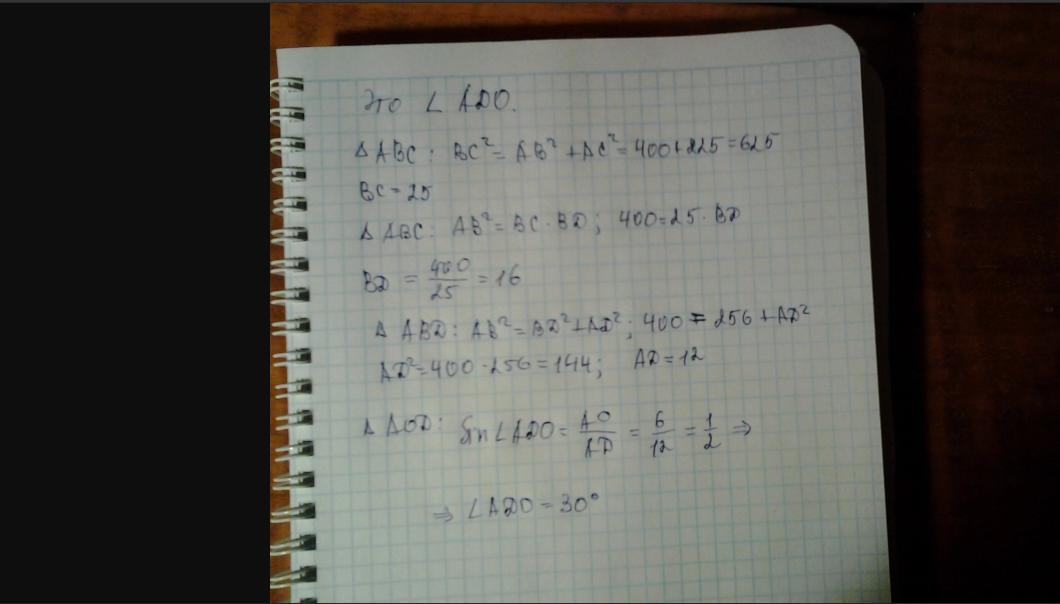 Это ∠ ADO.
Δ ABC: BC² = AB² + AC² = 400+225 = 625
BC = 25
Δ ABC: AB² = BC · BD; 400 = 25 · BD
BD = 400/25 = 16
Δ ABD: AB² = BD² + AD²; 400 = 256 + AD²
AD² = 400 - 256 = 144; AD = 12
Δ AOD: Sin ∠ADO = AO/AD = 6/12 = 1/2 ⇒
⇒ ∠ADO = 30°